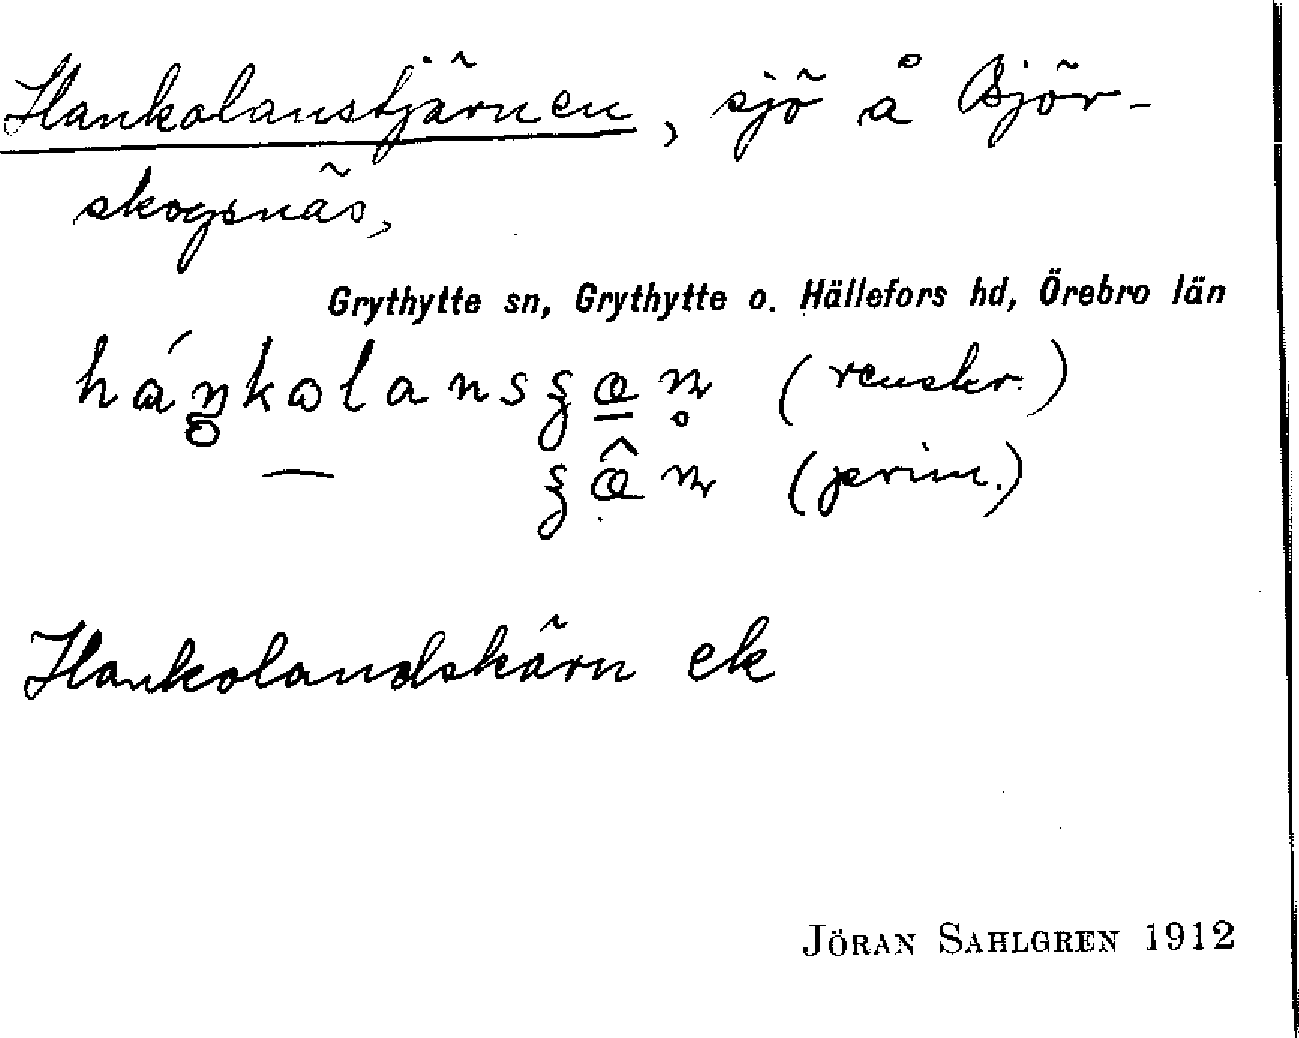 Hankolanstjärnen, sjö å Björ-
skogsnäs,
Grythytte sn, Grythytte o. Hällefors hd, Örebro län
(renskr.)
— (prim.)
Hankolandskärn ek
JÖRAN SAHLGREN 1912